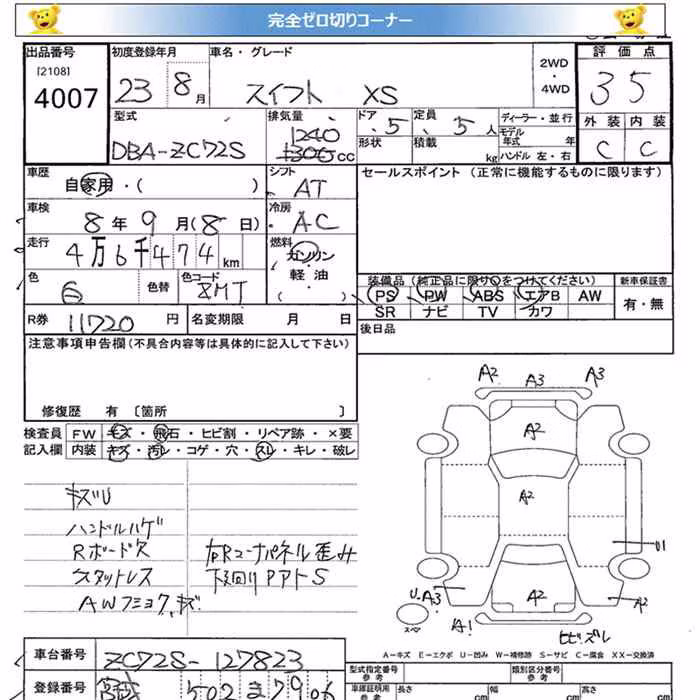 完全ゼロ切りコーナー
出品番号 初度登録年月 車名・グレード 2WD ・ 4WD 評価点
[2108]
4007 23 8月 スイフト XS 35
型式 排気量 ドア 定員 ディーラー・並行 外装 内装
DBA-ZC72S 1240 1300cc 5 5人 モデル年式 年 C C
形状 積載 kg ハンドル 左・右
車歴 シフト セールスポイント (正常に機能するものに限ります)
自家用・( ) AT
車検 冷房
8年9月(8日) AC
走行 燃料
4万6千474km ガソリン
軽・油
( )
色 色替 色コード 装備品 (純正品に限り○をつけてください) 新車保証書
G ZMT PS PW ABS エアB AW 有・無
SR ナビ TV カワ
R券 11720円 名変期限 月 日 後日品
注意事項申告欄(不具合内容等は具体的に記入して下さい)
修復歴 有 〔箇所 〕
検査員 FW キズ・飛石・ヒビ割・リペア跡・×要
記入欄 内装 キズ・汚レ・コゲ・穴・スレ・キレ・破レ
キズU
ハンドルハゲ
Rボード欠 右Rコーナパネル歪み
スタットレス 下廻りPPトS
AWフミヨク、キズ
A2 A3 A3
A2
A2
U1
U-A3 A2 A2
スペア A1 ヒビ、ズレ
A-キズ E-エクボ U-凹み W-補修跡 S-サビ C-腐食 XX-交換済
車台番号 ZC72S-127823 型式指定番号 参考 類別区分番号 参考
登録番号 502 27906 車庫証明用 参考 長さ cm 幅 cm 高さ cm